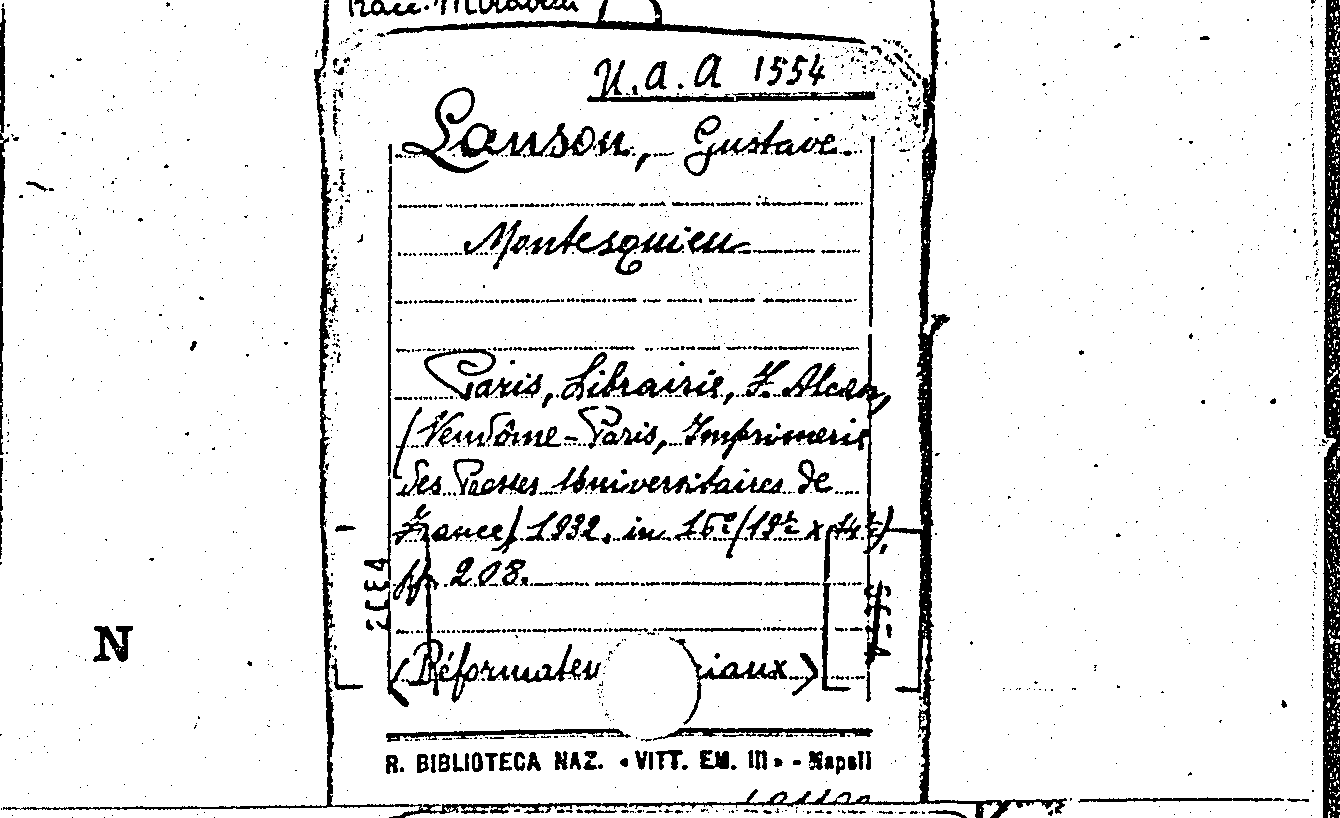 U.a.A 1554
Lanson, Gustave.
Montesquieu
Paris, Librairie, F. Alcan,
(Vendôme-Paris, Imprimerie
des Presses Universitaires de
France) 1932. in 16º (19½ x 14½),
pp. 208.
(Réformateu riaux)
N
R. BIBLIOTECA NAZ. «VITT. EM. III» - Napoli